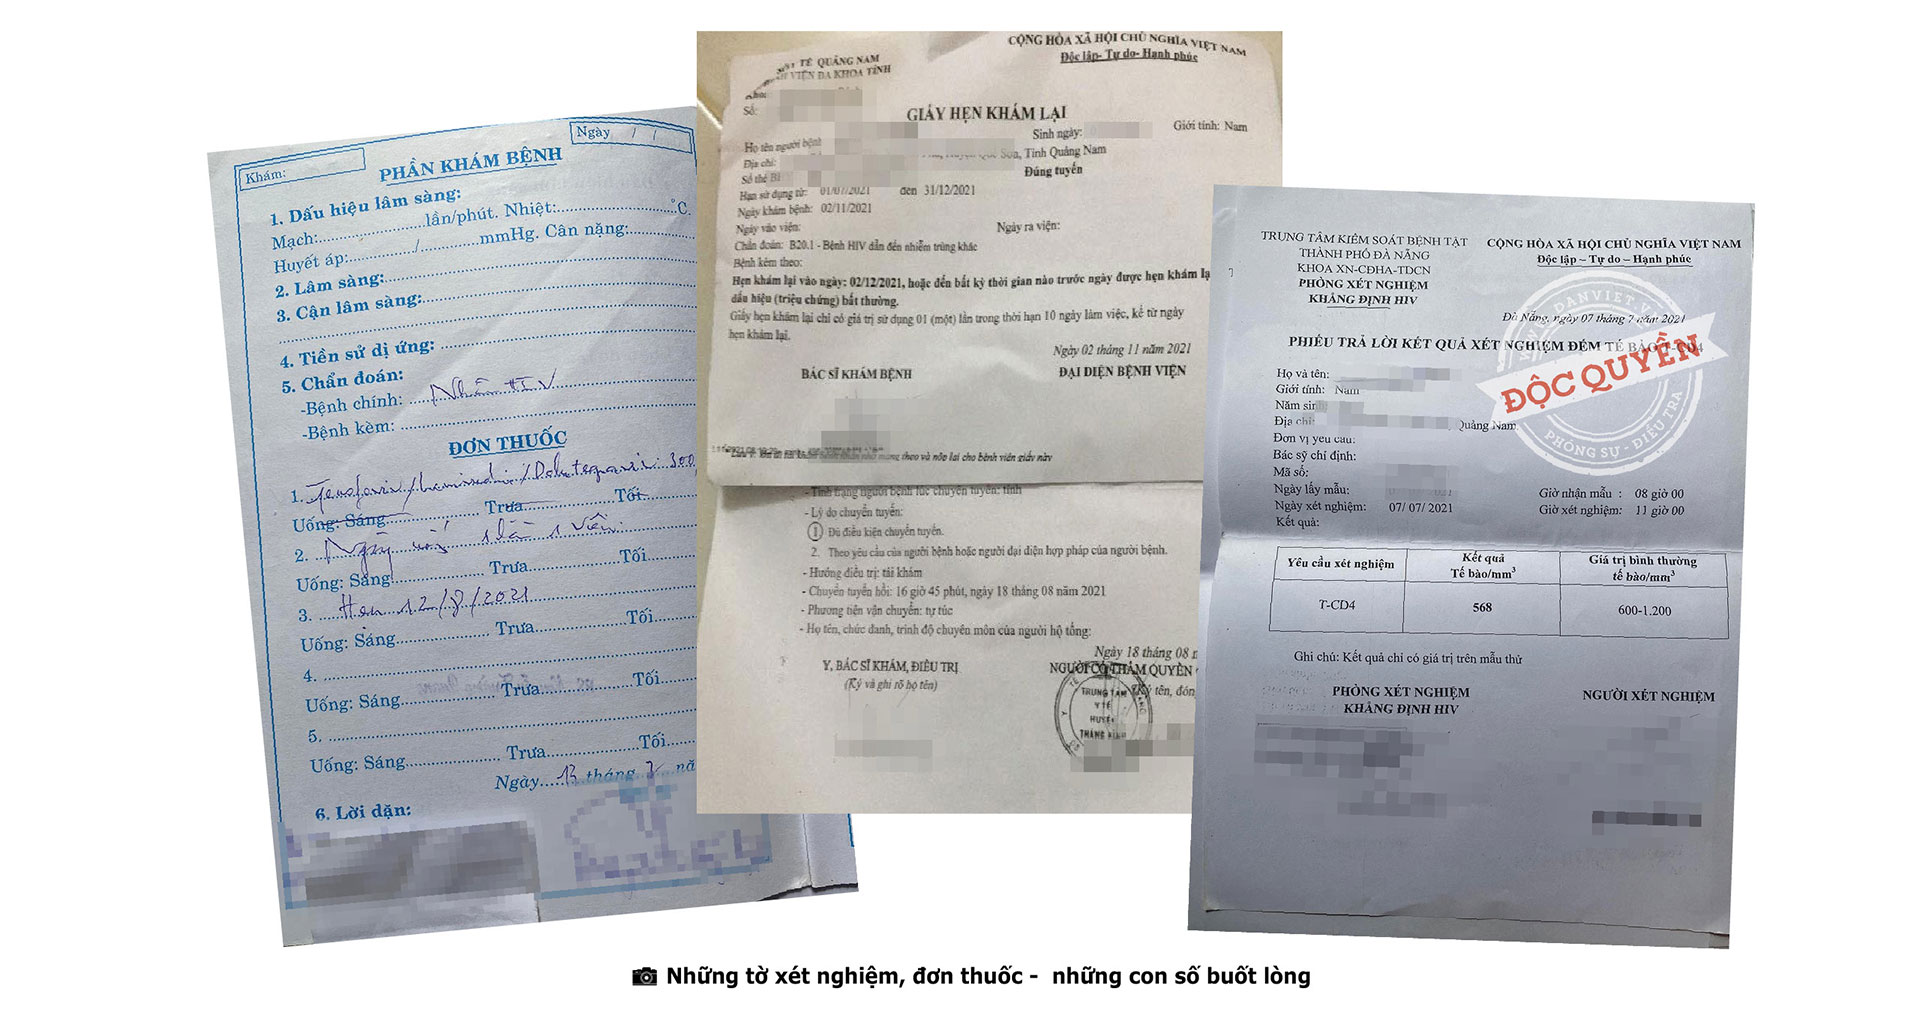 Khám:
Ngày / /
PHẦN KHÁM BỆNH
1. Dấu hiệu lâm sàng:
Mạch:..........lần/phút. Nhiệt:..........°C.
Huyết áp:........../..........mmHg. Cân nặng:..........
2. Lâm sàng:
3. Cận lâm sàng:
4. Tiền sử dị ứng:
5. Chẩn đoán:
-Bệnh chính:
-Bệnh kèm:
ĐƠN THUỐC
1. 300
Uống: Sáng.......... Trưa.......... Tối..........
2. Ngày uống 1 lần 1 viên.
Uống: Sáng.......... Trưa.......... Tối..........
3. Hẹn 12/8/2021
Uống: Sáng.......... Trưa.......... Tối..........
4.
Uống: Sáng.......... Trưa.......... Tối..........
5.
Uống: Sáng.......... Trưa.......... Tối..........
Ngày....13 tháng 7 nă
6. Lời dặn:
TẾ QUẢNG NAM
VIỆN ĐA KHOA TỈNH
Số:
CỘNG HÒA XÃ HỘI CHỦ NGHĨA VIỆT NAM
Độc lập- Tự do- Hạnh phúc
GIẤY HẸN KHÁM LẠI
Họ tên người bệnh Sinh ngày: Giới tính: Nam
Địa chỉ: Huyện Quế Sơn, Tỉnh Quảng Nam
Số thẻ BH Đúng tuyến
Hạn sử dụng từ: 01/07/2021 đến 31/12/2021
Ngày khám bệnh: 02/11/2021
Ngày vào viện: Ngày ra viện:
Chẩn đoán: B20.1 - Bệnh HIV dẫn đến nhiễm trùng khác
Bệnh kèm theo:
Hẹn khám lại vào ngày: 02/12/2021, hoặc đến bất kỳ thời gian nào trước ngày được hẹn khám lạ
dấu hiệu (triệu chứng) bất thường.
Giấy hẹn khám lại chỉ có giá trị sử dụng 01 (một) lần trong thời hạn 10 ngày làm việc, kể từ ngày
hẹn khám lại.
Ngày 02 tháng 11 năm 2021
BÁC SĨ KHÁM BỆNH ĐẠI DIỆN BỆNH VIỆN
mang theo và nộp lại cho bệnh viên giấy này
- Tình trạng người bệnh lúc chuyển tuyến: tỉnh
- Lý do chuyển tuyến:
1 Đủ điều kiện chuyển tuyến.
2. Theo yêu cầu của người bệnh hoặc người đại diện hợp pháp của người bệnh.
- Hướng điều trị: tái khám
- Chuyển tuyến hồi: 16 giờ 45 phút, ngày 18 tháng 08 năm 2021
- Phương tiện vận chuyển: tự túc
- Họ tên, chức danh, trình độ chuyên môn của người hộ tống:
Ngày 18 tháng 08 n
Y, BÁC SĨ KHÁM, ĐIỀU TRỊ NGƯỜI CÓ THẨM QUYỀN
(Ký và ghi rõ họ tên) Ký tên, đón
TRUNG TÂM
Y TẾ
HUYỆN
TRUNG TÂM KIỂM SOÁT BỆNH TẬT
THÀNH PHỐ ĐÀ NẴNG
KHOA XN-CĐHA-TDCN
PHÒNG XÉT NGHIỆM
KHẲNG ĐỊNH HIV
CỘNG HÒA XÃ HỘI CHỦ NGHĨA VIỆT NAM
Độc lập – Tự do – Hạnh phúc
Đà Nẵng, ngày 07 tháng 7 năm 2021
PHIẾU TRẢ LỜI KẾT QUẢ XÉT NGHIỆM ĐẾM TẾ BÀO T-CD4
DANVIET.V
ĐỘC QUYỀN
PHÓNG SỰ - ĐIỀU TRA
Họ và tên:
Giới tính: Nam
Năm sinh
Địa chỉ: Quảng Nam
Đơn vị yêu cầu:
Bác sỹ chỉ định:
Mã số:
Ngày lấy mẫu: Giờ nhận mẫu : 08 giờ 00
Ngày xét nghiệm: 07/ 07/ 2021 Giờ xét nghiệm: 11 giờ 00
Kết quả:
Yêu cầu xét nghiệm Kết quả Tế bào/mm³ Giá trị bình thường tế bào/mm³
T-CD4 568 600-1.200
Ghi chú: Kết quả chỉ có giá trị trên mẫu thử
PHÒNG XÉT NGHIỆM NGƯỜI XÉT NGHIỆM
KHẲNG ĐỊNH HIV
Những tờ xét nghiệm, đơn thuốc - những con số buốt lòng